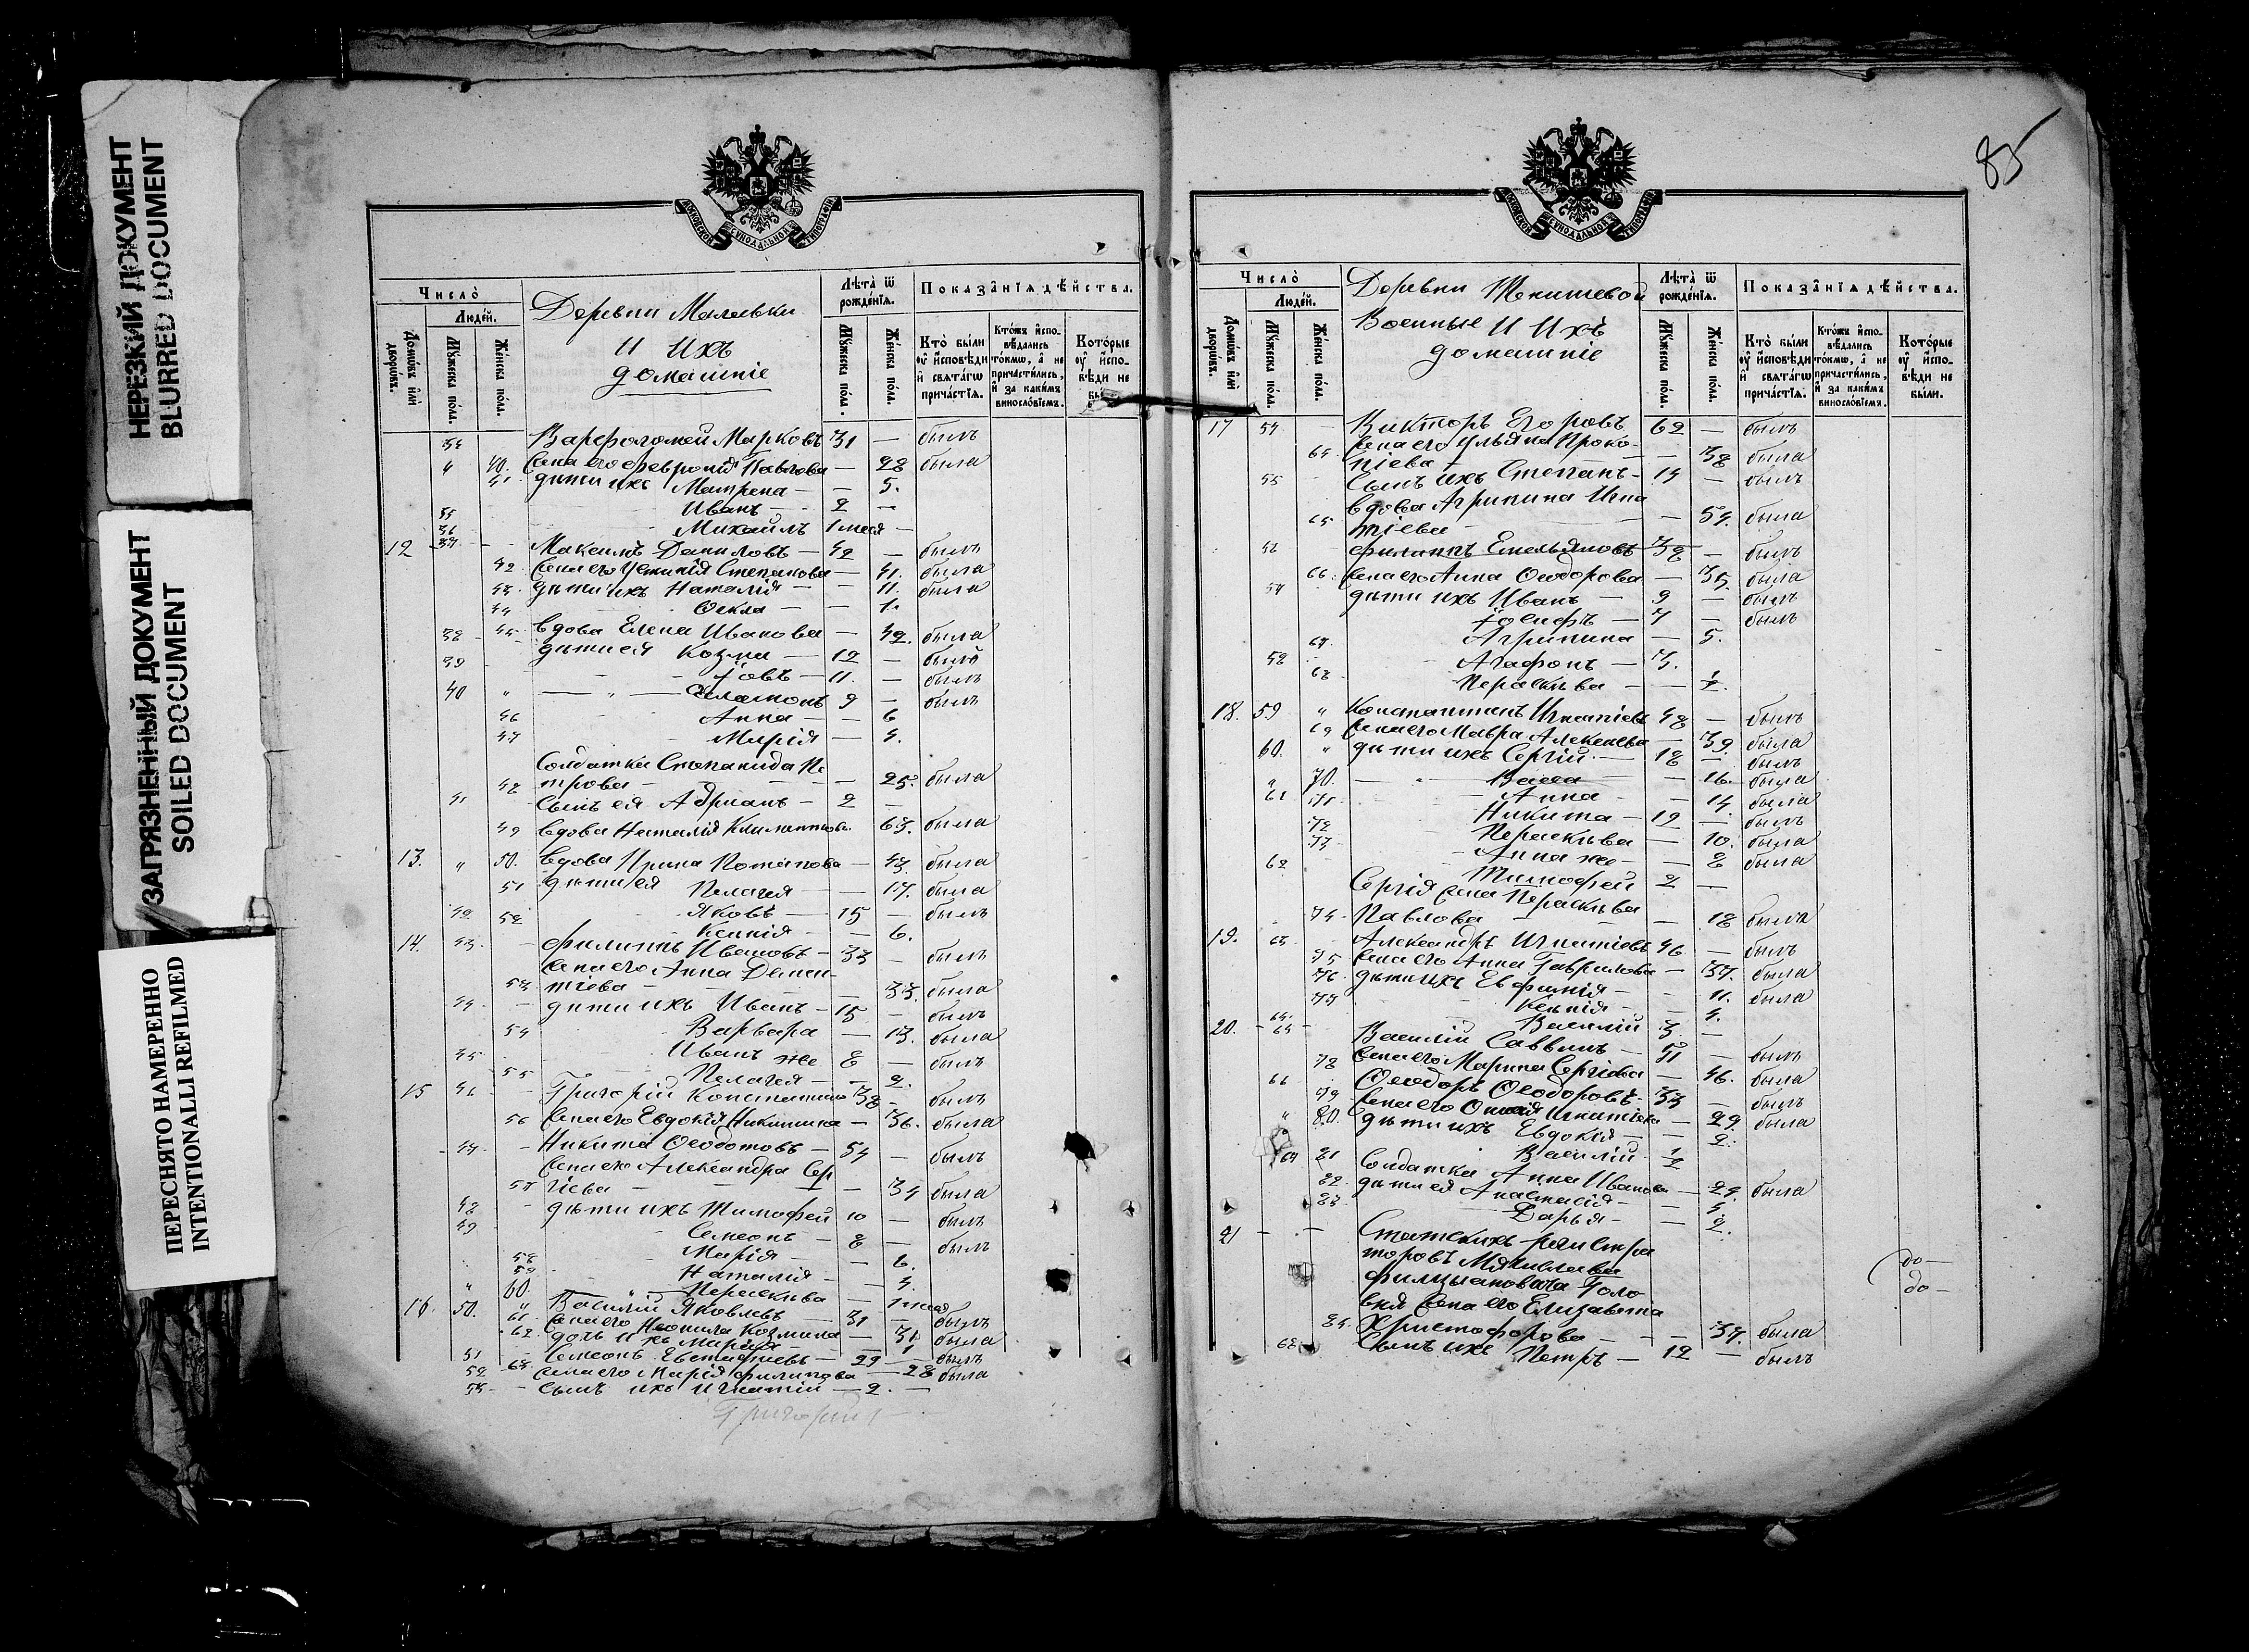 НЕРЕЗКИЙ ДОКУМЕНТ
BLURRED DOCUMENT
ЗАГРЯЗНЕННЫЙ ДОКУМЕНТ
SOILED DOCUMENT
ПЕРЕСНЯТО НАМЕРЕННО
INTENTIONALLI REFILMED
МОСКОВСКОЙ СѴНОДАЛЬНОЙ ТИПОГРАФІИ
Число̀
Людей.
Домѡвъ или дворѡвъ.
Мꙋжеска пола.
Женска пола.
Деревни
и ихъ
домашніе
Лѣта̀ ѿ рожденїѧ.
Мꙋжеска пола.
Женска пола.
Показанїѧ дѣйства.
Кто̀ были оу исповѣди и свѧтагѡ причастїѧ.
Ктожъ исповѣдались токмѡ, а не причастились, и за какимъ винословїемъ.
Которые оу исповѣди не бы
34 Варѳоломей Марковъ 31 — былъ
40. жена его Феврония Павлова — 28 была
41 дѣти ихъ Матрена — — 5.
35 Иванъ — 2 —
36 Михаилъ 1 меся —
12 37 Максимъ Даниловъ — 42 — былъ
42 жена его Устинія Степанова — 41. была
43 дѣти ихъ Наталія — — 11. была
44 Ѳекла — — 1.
45 вдова Елена Иванова — 42. была
38 дѣти ея Козма — 12 — былъ
39 Іовъ — 11. — былъ
40 9 — былъ
46 Анна — — 6
47 Марія — 4.
Солдатка Степанида Пе
48 трова — — 25. была
41 сынъ ея Адріанъ — 2 —
49 вдова Наталія 63. была
13. 50. вдова Ирина Потапова — 43. была
51 дѣти ея Пелагея — — 17. была
42 52 Яковъ — 15 — былъ
Ксенія — — 6.
14. 43. Филиппъ Ивановъ — 33 — былъ
жена его Анна Демен
53 тіева — — 33. была
44. дѣти ихъ Иванъ — 15 — былъ
54 Варвара — 13. была
45 Иванъ же 8 — былъ
55 Пелагея — — 2.
15 46 Григорій 38 — былъ
56 жена его Евдокія Никитина — 36. была
47 Никита Ѳеодотовъ — 54 — былъ
жена его Александра Сер
57 гіева — — 34 была
48 дѣти ихъ Тимофей 10 — былъ
49 Симеонъ — 8 — былъ
58 Марія — — 6.
59 Наталія — — 4.
60. Пераскева — 1 меся
16. 50. Василій Яковлевъ — 31 — былъ
61. жена его Неонила Козмина — 31. была
62. дочь ихъ Марія — — 1
51 Симеонъ Евстафіевъ — 29 — былъ
52 63. жена его Марія Филипова — 28 была
53 — сынъ ихъ Игнатій — 2. —
Григорий 1
85
МОСКОВСКОЙ СѴНОДАЛЬНОЙ ТИПОГРАФІИ
Число̀
Людей.
Домѡвъ или дворѡвъ.
Мꙋжеска пола.
Женска пола.
Деревни
Военные и ихъ
домашніе
Лѣта̀ ѿ рожденїѧ.
Мꙋжеска пола.
Женска пола.
Показанїѧ дѣйства.
Кто̀ были оу исповѣди и свѧтагѡ причастїѧ.
Ктожъ исповѣдались токмѡ, а не причастились, и за какимъ винословїемъ.
Которые оу исповѣди не были.
17 54 Викторъ Егоровъ 62 — былъ
жена его Ульяна Проко
64. піева — — 38 была
55 сынъ ихъ Степанъ — 14 — былъ
вдова Агрипина Игна
65 тіева — — 54. была
56 Филиппъ Емельяновъ 38 — былъ
66. жена его Анна Ѳеодорова — 35. была
57 дѣти ихъ Иванъ — 9 — былъ
Іосифъ — 7 — былъ
67. Агрипина — 5.
58 Агафонъ — 3.
68 Пераскѣва — — ½.
18. 59 Константинъ Игнатіевъ 48 — былъ
69 жена его Мавра Алексѣева — 39. была
60. дѣти ихъ Сергій — 18 — былъ
70. Васса — 16. была
61 71 Анна — — 14 была
Никита — 12 — былъ
72 Пераскѣва — 10. была
73 Анна же — — 8 была
62 Тимофей 2 —
Сергія жена Пераскѣва
74 Павлова — — 18 была
19. 63. Александръ Игнатіевъ 46 — былъ
75 жена его Анна Гаврилова — 37. была
76 дѣти ихъ Евфимія — — 11. была
77 Ксенія — — 4.
64. Василій 3. —
20. 65 Василій Саввинъ — 51 — былъ
78 жена его Марина Сергіева — 46. была
66 Ѳеодоръ Ѳеодоровъ — 33 — былъ
79 жена его Игнатіева — 29 была
80. дѣти ихъ Евдокія — — 2.
67 Василій ½
81 Солдатка Анна Иванова — 24. была
82. дѣти ея Анастасія — — 4.
83. Дарья — — 2.
21 — — Статскихъ регистра
торовъ
Голо
жена его Елизавета
84. Христофорова — — 37. была
68 Сынъ ихъ Петръ — 12 — былъ
до —
до —